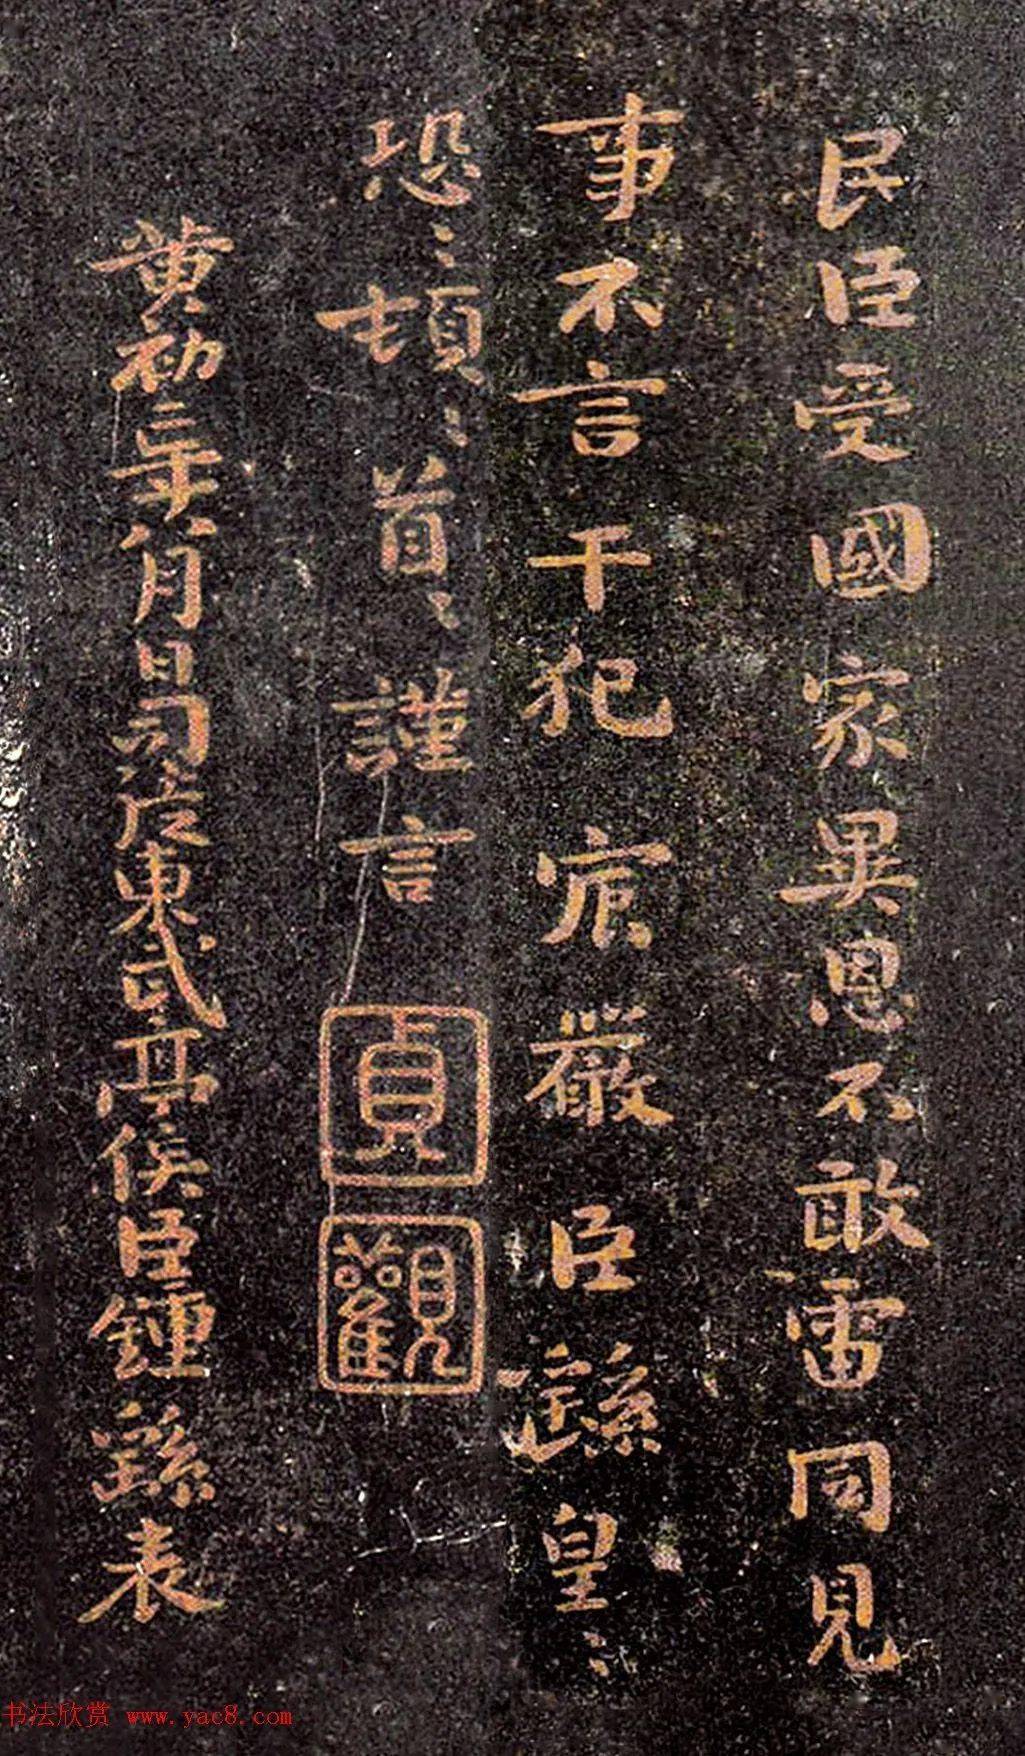 民臣受國家異恩不敢雷同見
事不言干犯宸嚴臣繇皇〻
恐〻頓〻首〻謹言
貞觀
黄初二年八月日司徒東武亭侯臣鍾繇表
书法欣赏 www.yac8.com